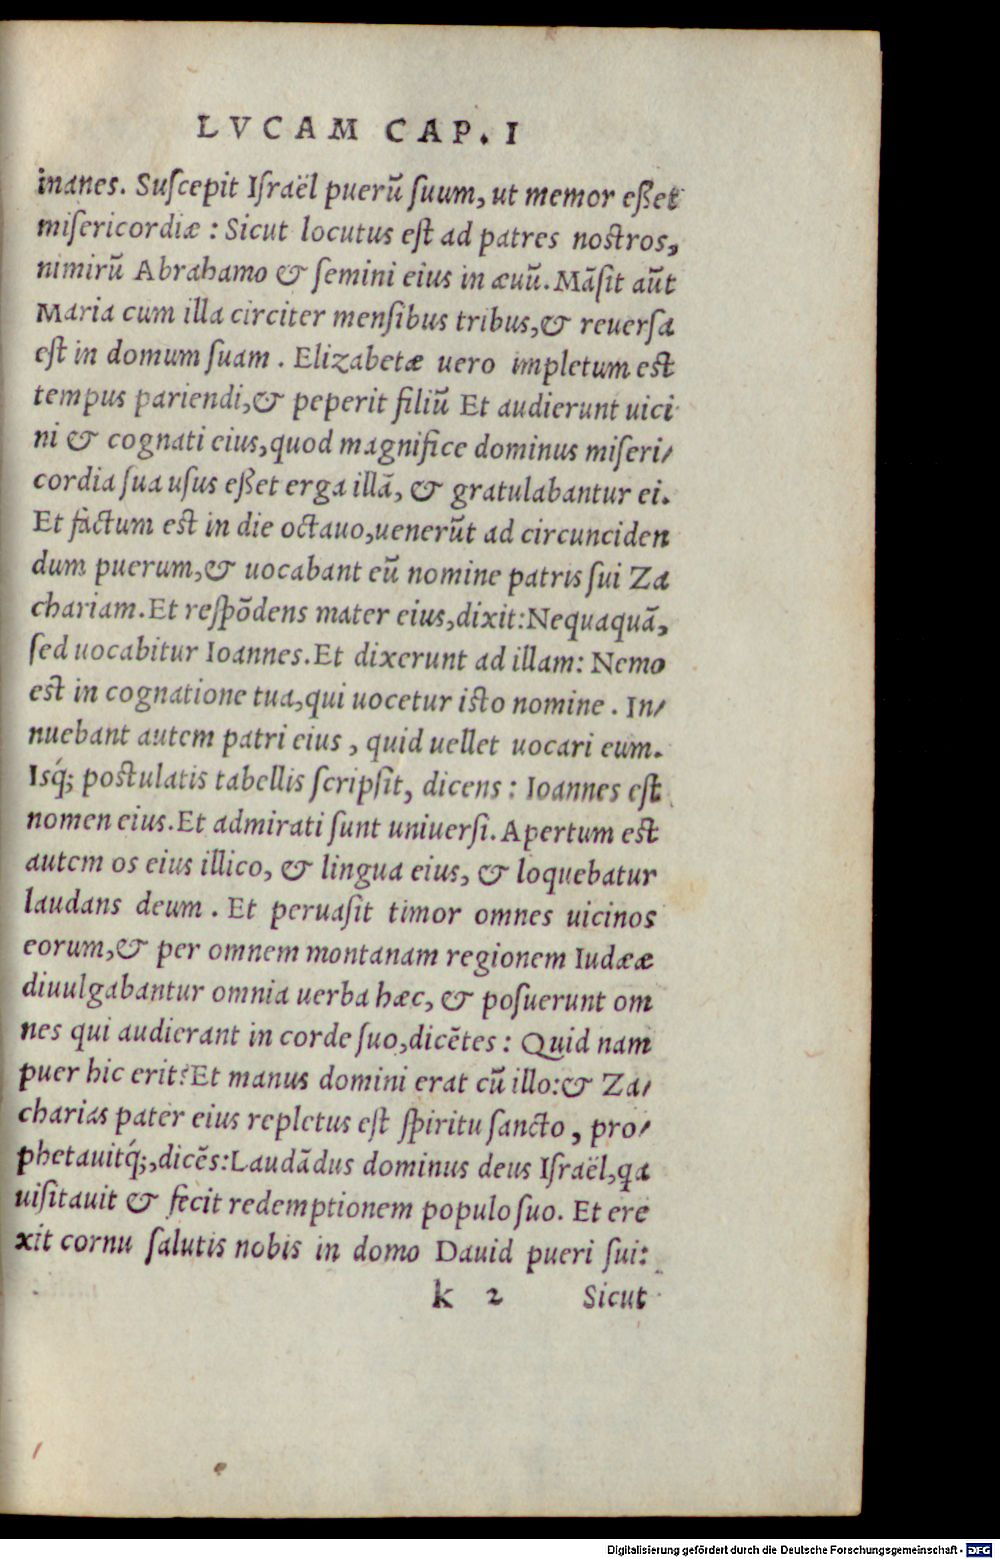 LVCAM CAP. I
inanes. Suſcepit Iſraël puerū ſuum, ut memor eßet
miſericordiæ : Sicut locutus eſt ad patres noſtros,
nimirū Abrahamo & ſemini eius in æuū. Māſit aūt
Maria cum illa circiter menſibus tribus,& reuerſa
eſt in domum ſuam . Elizabetæ uero impletum eſt
tempus pariendi,& peperit filiū Et audierunt uici
ni & cognati eius,quod magnifice dominus miſeri/
cordia ſua uſus eßet erga illā, & gratulabantur ei.
Et factum eſt in die octauo,uenerūt ad circunciden
dum puerum,& uocabant eū nomine patris ſui Za
chariam.Et reſpōdens mater eius,dixit:Nequaquā,
ſed uocabitur Ioannes.Et dixerunt ad illam: Nemo
eſt in cognatione tua,qui uocetur iſto nomine . In/
nuebant autem patri eius , quid uellet uocari eum.
Isq́; poſtulatis tabellis ſcripſit, dicens : Ioannes eſt
nomen eius.Et admirati ſunt uniuerſi. Apertum eſt
autem os eius illico, & lingua eius, & loquebatur
laudans deum . Et peruaſit timor omnes uicinos
eorum,& per omnem montanam regionem Iudææ
diuulgabantur omnia uerba hæc, & poſuerunt om
nes qui audierant in corde ſuo,dicētes : Quid nam
puer hic erit?Et manus domini erat cū illo:& Za/
charias pater eius repletus eſt ſpiritu ſancto , pro/
phetauitq́;,dicēs:Laudādus dominus deus Iſraël,qa
uiſitauit & fecit redemptionem populo ſuo. Et ere
xit cornu ſalutis nobis in domo Dauid pueri ſui:
k 2 Sicut
Digitalisierung gefördert durch die Deutsche Forschungsgemeinschaft - DFG